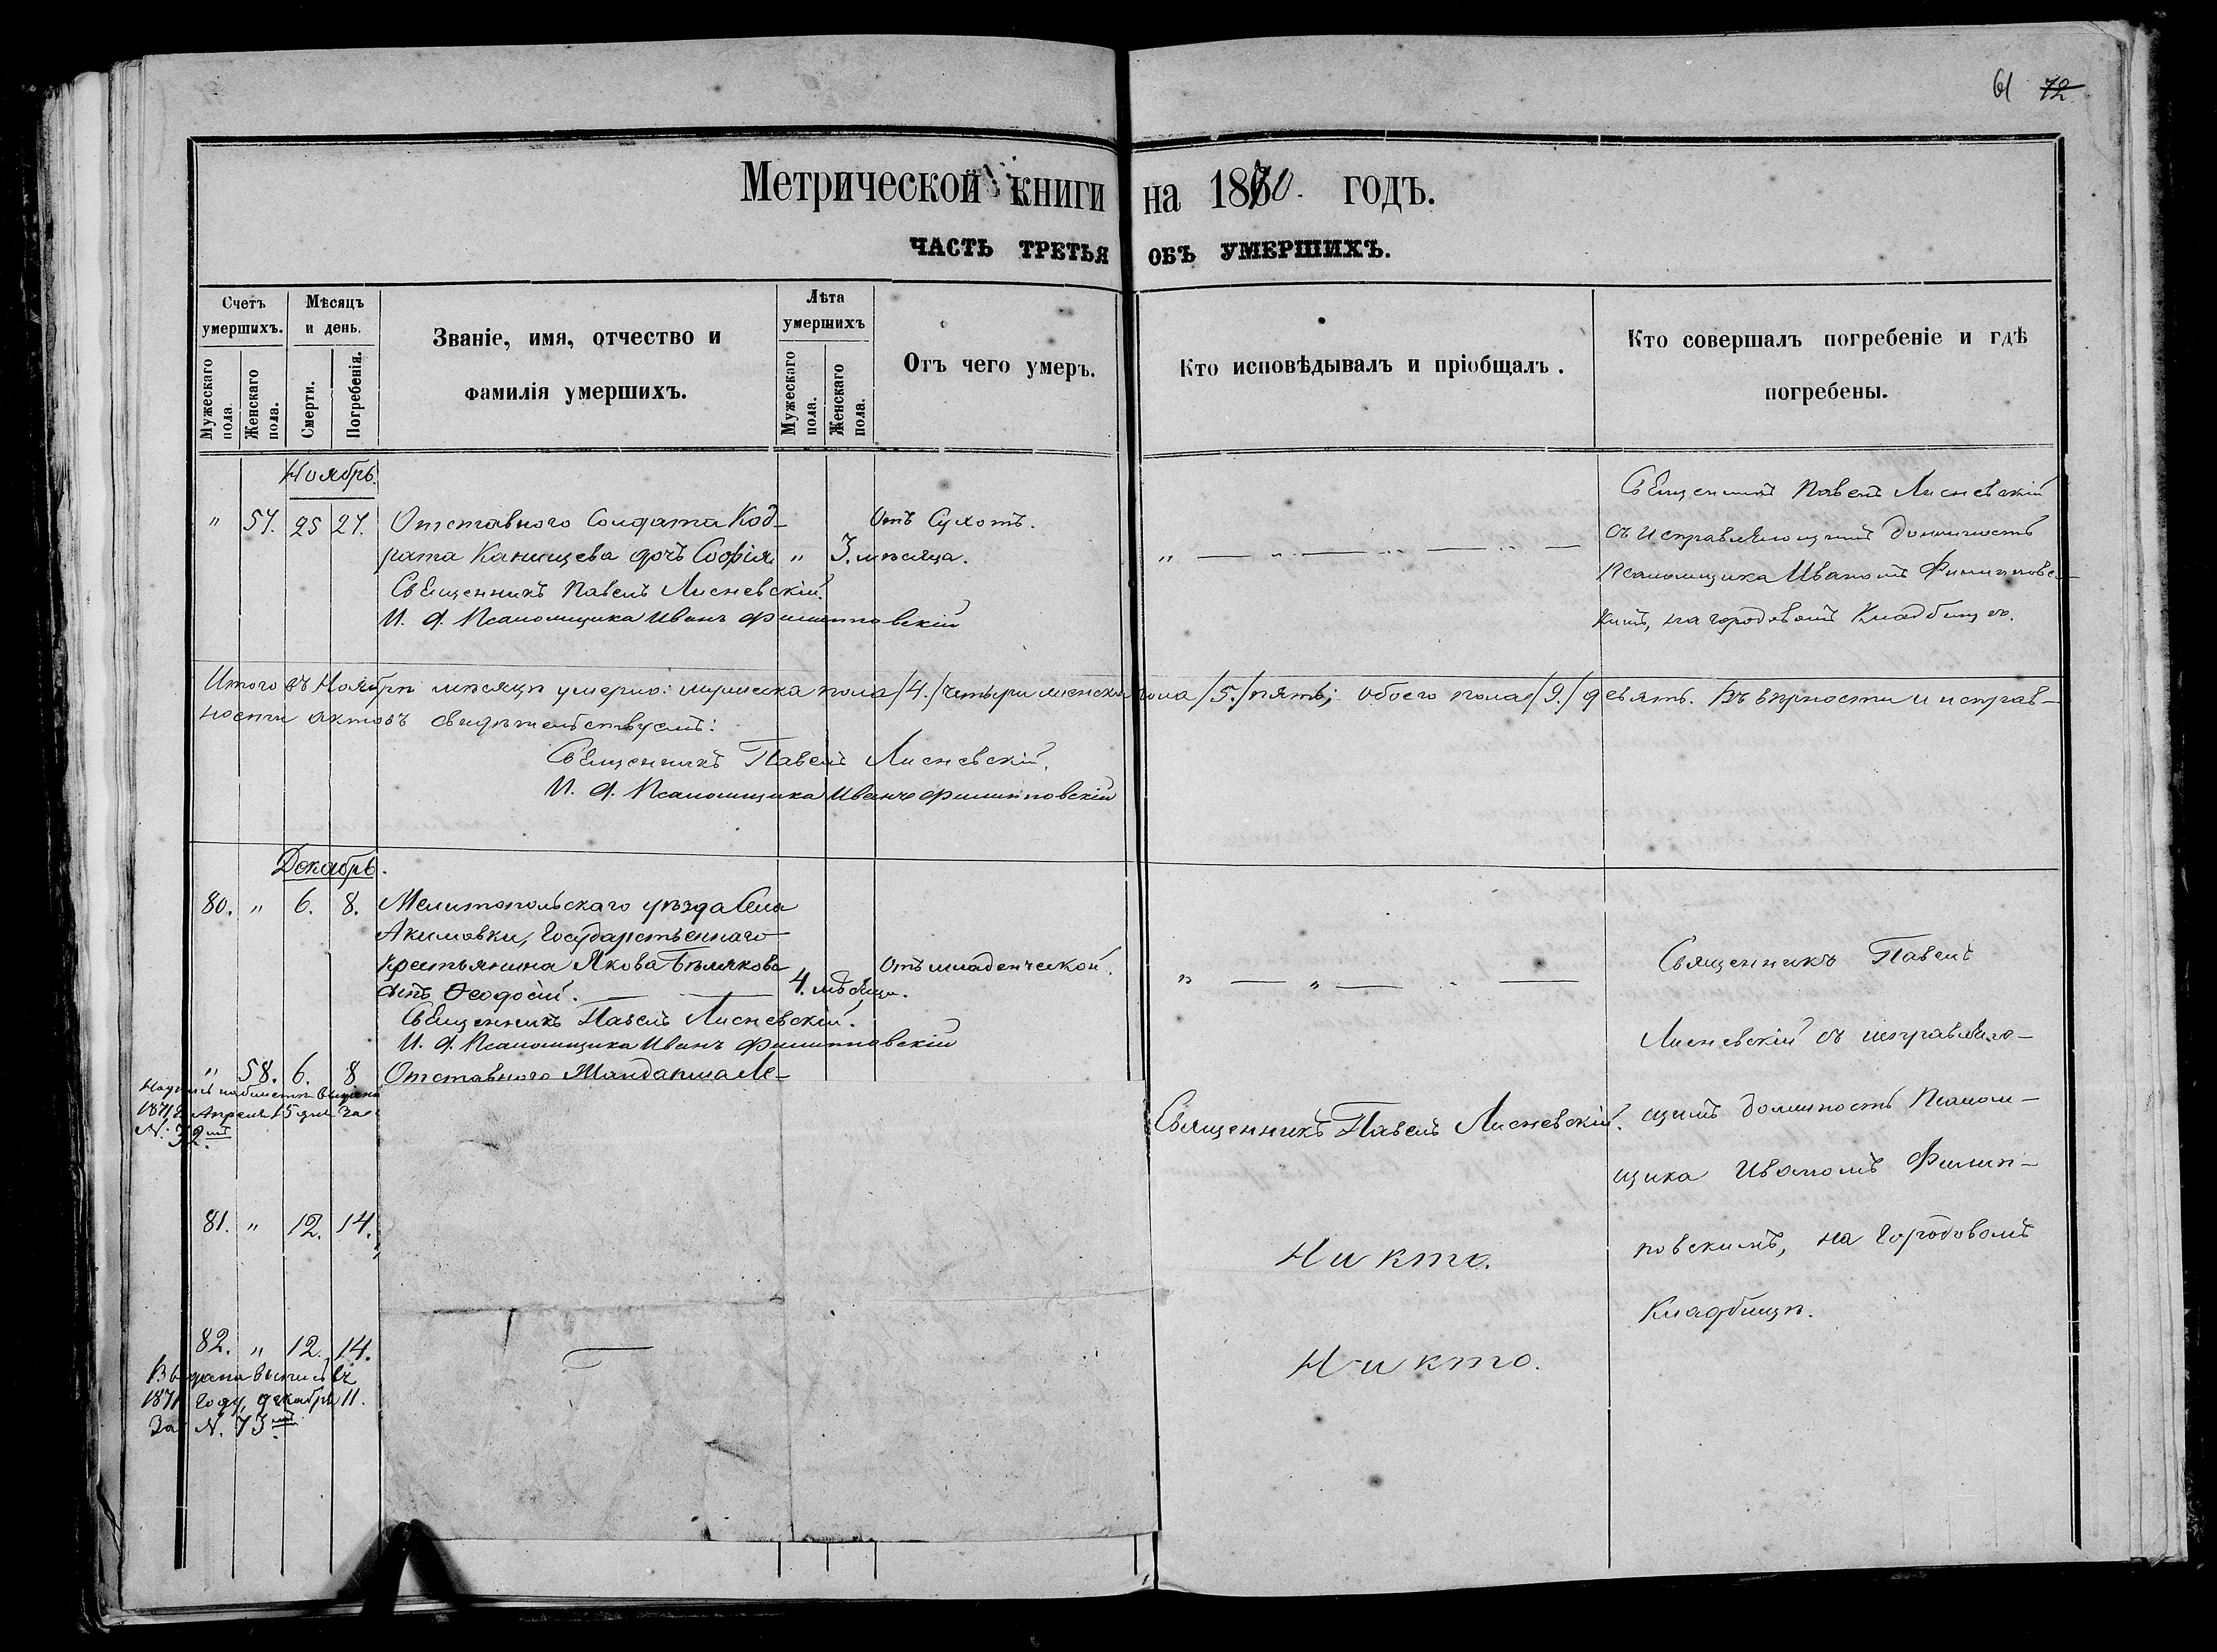 61 72
Метрической книги на 1870. годъ.
ЧАСТЬ ТРЕТЬЯ ОБЪ УМЕРШИХЪ.
Счетъ умершихъ.
Мужескаго пола.
Женскаго пола.
Мѣсяцъ и день.
Смерти.
Погребенія.
Званіе, имя, отчество и
фамилія умершихъ.
Лѣта умершихъ
Мужескаго пола.
Женскаго пола.
Отъ чего умеръ.
Кто исповѣдывалъ и пріобщалъ.
Кто совершалъ погребеніе и гдѣ
погребены.
Ноябрь.
" 57. 25 27. Отставного Солдата Код-
рата Канищева дочь Софія " 3. мѣсяца.
Отъ Сухотъ.
Священникъ Павелъ Лисневскій.
И. д. Псаломщика Иванъ Филипповскій
Священникъ Павелъ Лисневскій
съ исправляющимъ должность
Псаломщика Иваномъ Филипповс-
кимъ, на городовомъ Кладбищѣ.
Итого въ Ноябрѣ мѣсяцѣ умерло: мужеска пола /4./ четыри женска пола /5./ пять; обоего пола /9./ девять. Въ вѣрности и исправ-
ности актовъ свидѣтельствуемъ:
Священникъ Павелъ Лисневскій.
И. д. Псаломщика Иванъ Филипповскій
Декабрь.
80. " 6. 8. Мелитопольскаго уѣзда Села
Акимовки, Государственнаго
крестьянина Якова Бѣлякова
сынъ Ѳеодосій. 4. мѣсяца.
Отъ младенческой.
Священникъ Павелъ Лисневскій.
И. д. Псаломщика Иванъ Филипповскій
" 58. 6. 8. Отставного Жандарма Ле-
1871 Апреля 15 дня за
N. 32.
81. " 12. 14.
82. " 12. 14.
Выдана выпись въ
1871 году, декабря 11.
За N. 73
Священникъ Павелъ Лисневскій.
Никто.
Никто.
Священникъ Павелъ
Лисневскій съ исправляю-
щимъ должность Псалом-
щика Иваномъ Филип-
повскимъ, на Городовомъ
Кладбищѣ.